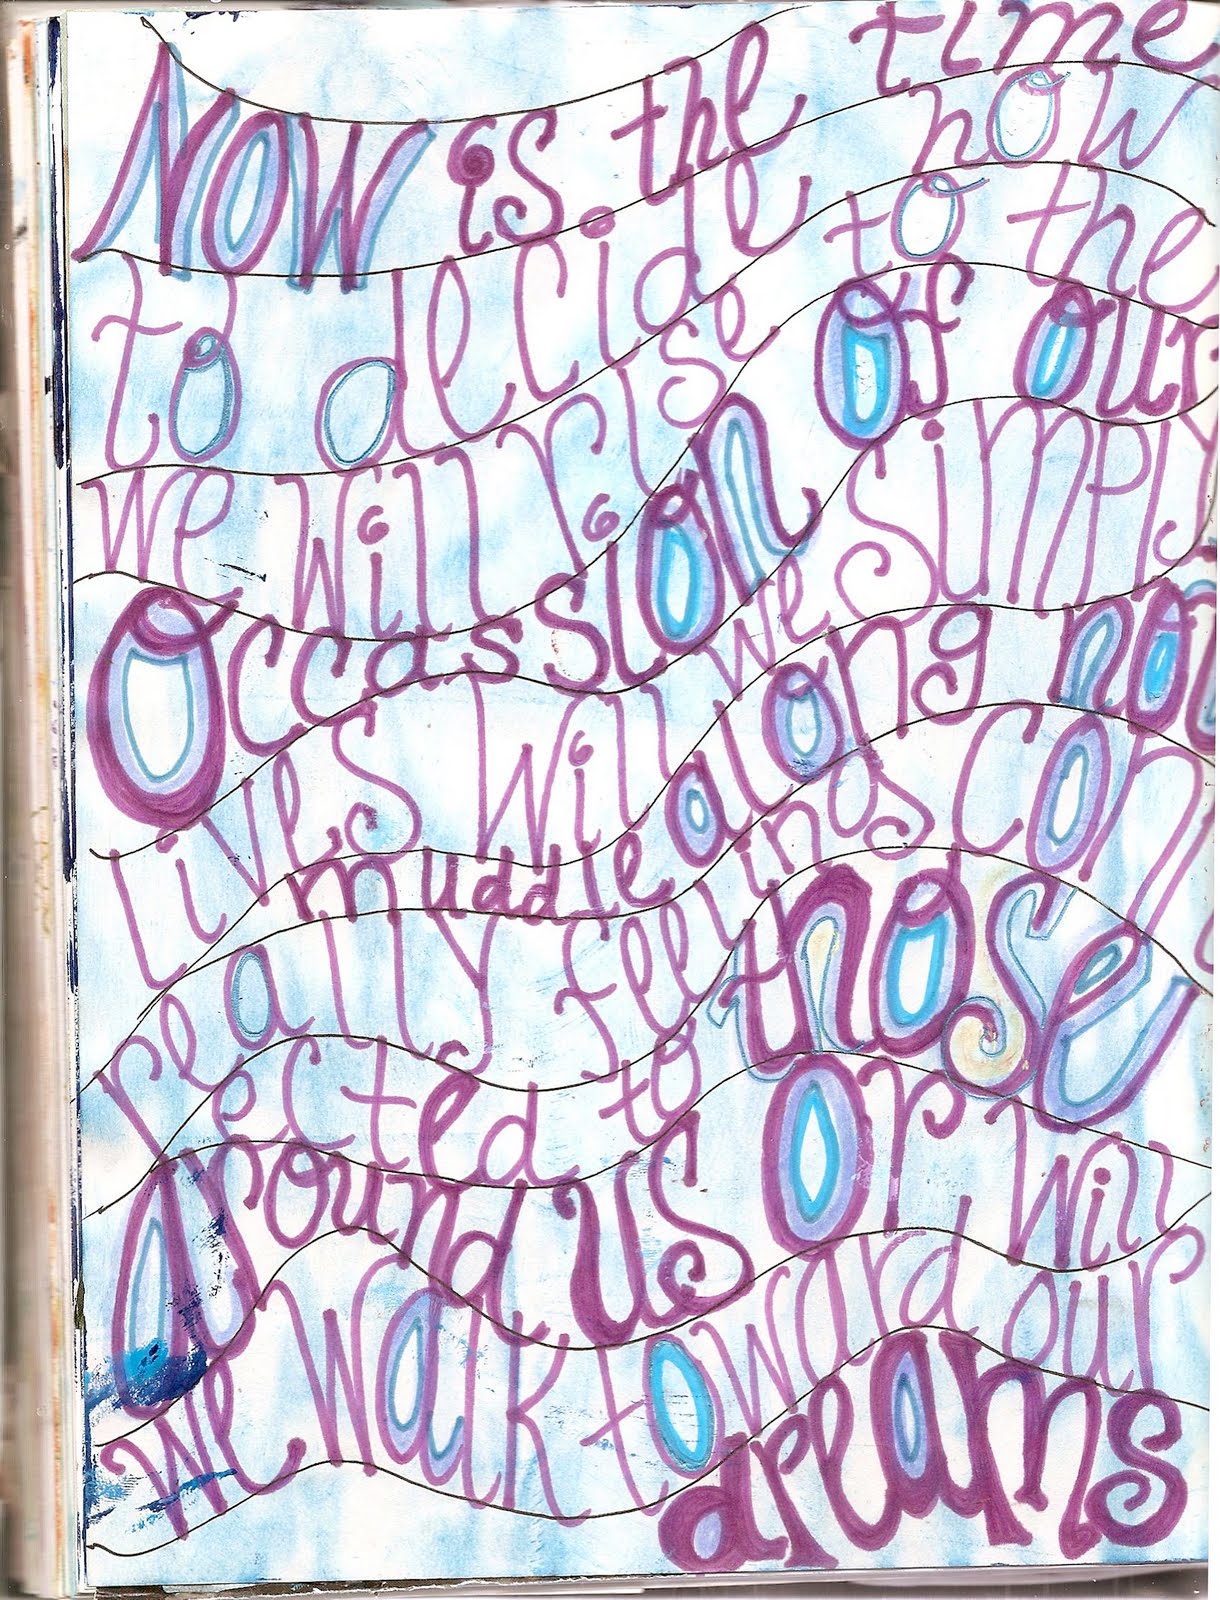 Now is the time
to decide how
we will rise to the
Occassion of our
lives will we simply
muddle along not
really feelings con
ected to those
Around us or will
we walk toward our
dreams